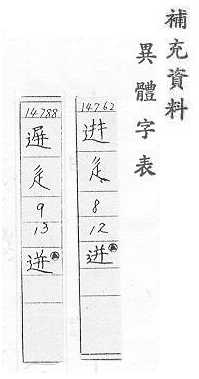 補充資料
異體字表
14762
辵
8
12
迸
14788
辵
9
13
迸